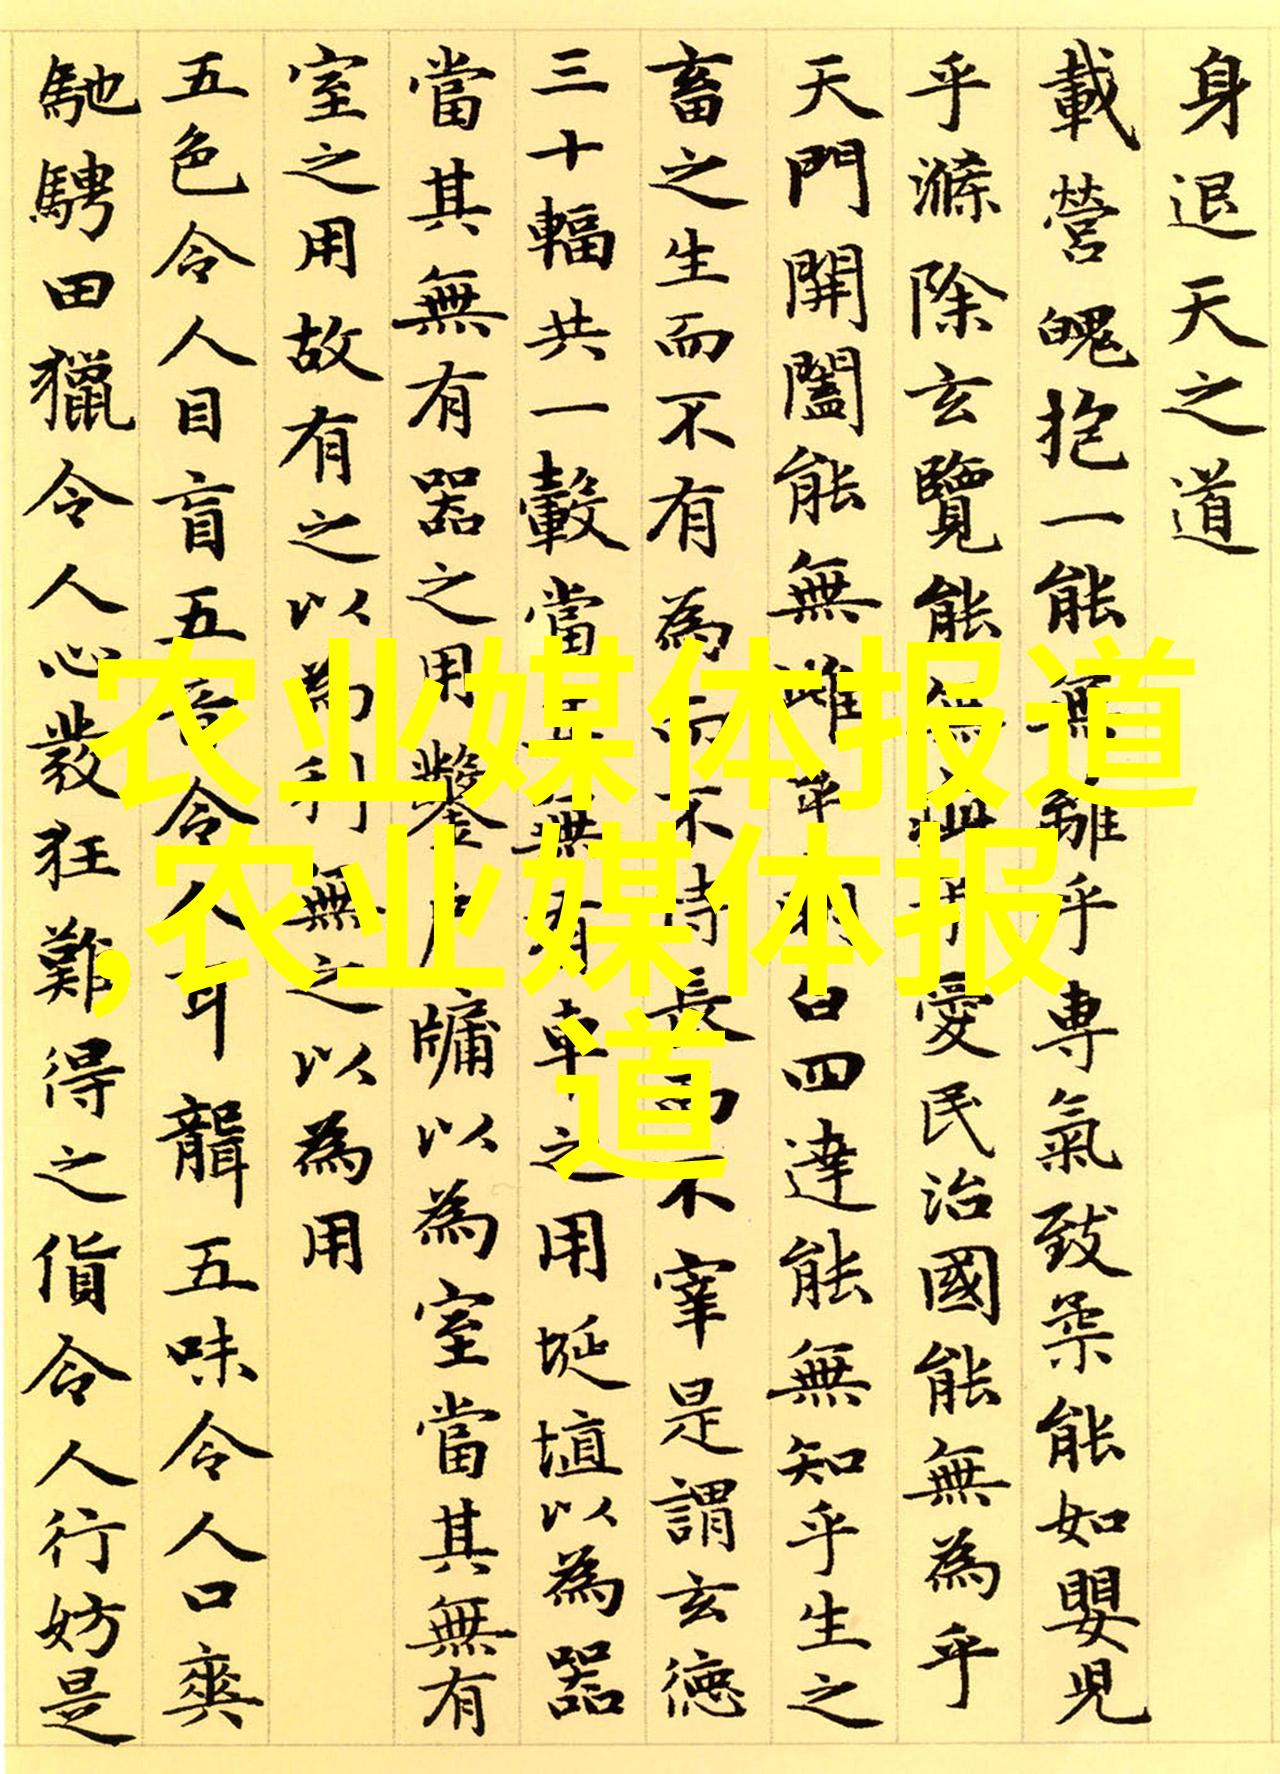 身退天之道
載營魄抱一能無離乎專氣致柔能如嬰兒
乎滌除玄覽能無疵乎愛民治國能無為乎
天門開闔能無雌乎明白四達能無知乎生之
畜之生而不有為而不恃長而不宰是謂玄德
三十輻共一轂當其無有車之用埏埴以為器
當其無有器之用鑿戶牖以為室當其無有
室之用故有之以為利無之以為用
五色令人目盲五音令人耳聾五味令人口爽
馳騁田獵令人心發狂難得之貨令人行妨是
农业媒体报道
,农业媒体报
道